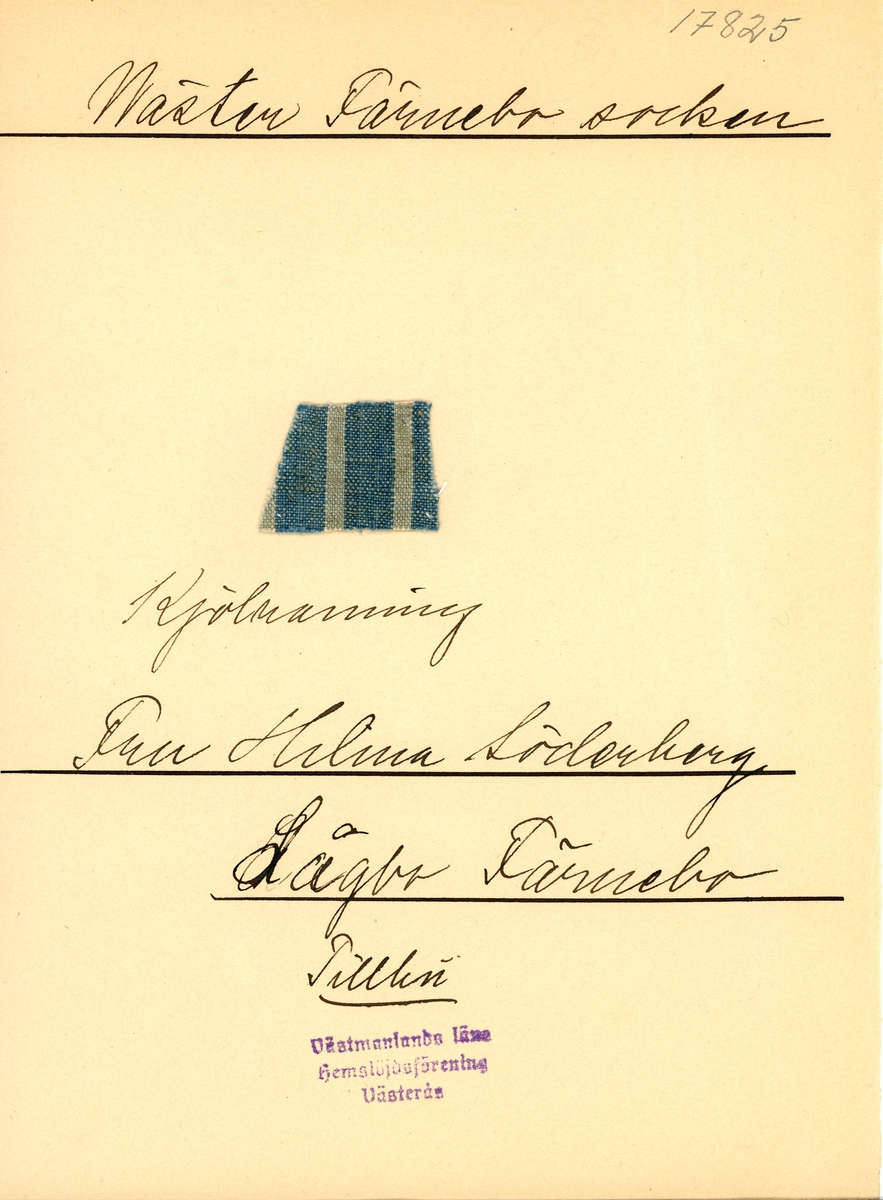 17825
Wäster Färnebo socken
Kjolvarning
Fru Hilma Söderberg
Lågbo Färnebo
Västmanlands läns
Hemslöjdsförening
Västerås